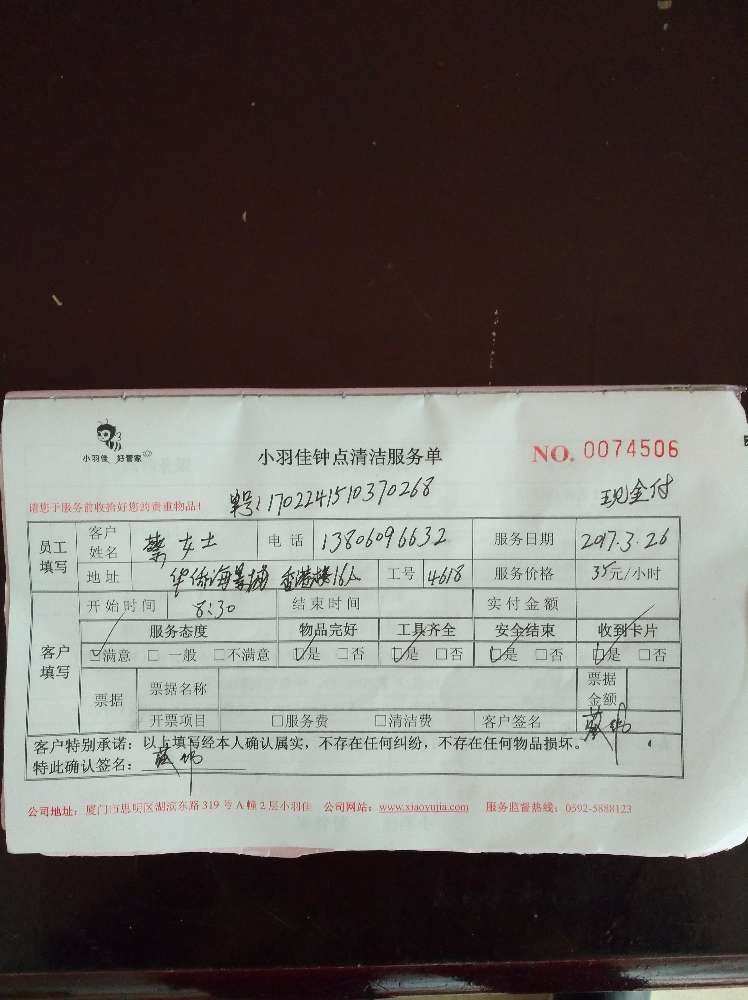 小羽佳 好管家
小羽佳钟点清洁服务单
NO. 0074506
请您于服务前收拾好您的贵重物品!
单号:1702241510370268
现金付
员工填写 客户姓名 蔡女士 电话 13806096632 服务日期 2017.3.26
地址 华侨海景城 16A 工号 4618 服务价格 35元/小时
客户填写 开始时间 8:30 结束时间 实付金额
服务态度 物品完好 工具齐全 安全结束 收到卡片
☑满意 □一般 □不满意 ☑是 □否 ☑是 □否 ☑是 □否 ☑是 □否
票据 票据名称 票据金额
开票项目 □服务费 □清洁费 客户签名
客户特别承诺:以上填写经本人确认属实,不存在任何纠纷,不存在任何物品损坏。
特此确认签名:
公司地址:厦门市思明区湖滨东路319号A幢2层小羽佳 公司网站:www.xiaoyujia.com 服务监督热线:0592-5888123